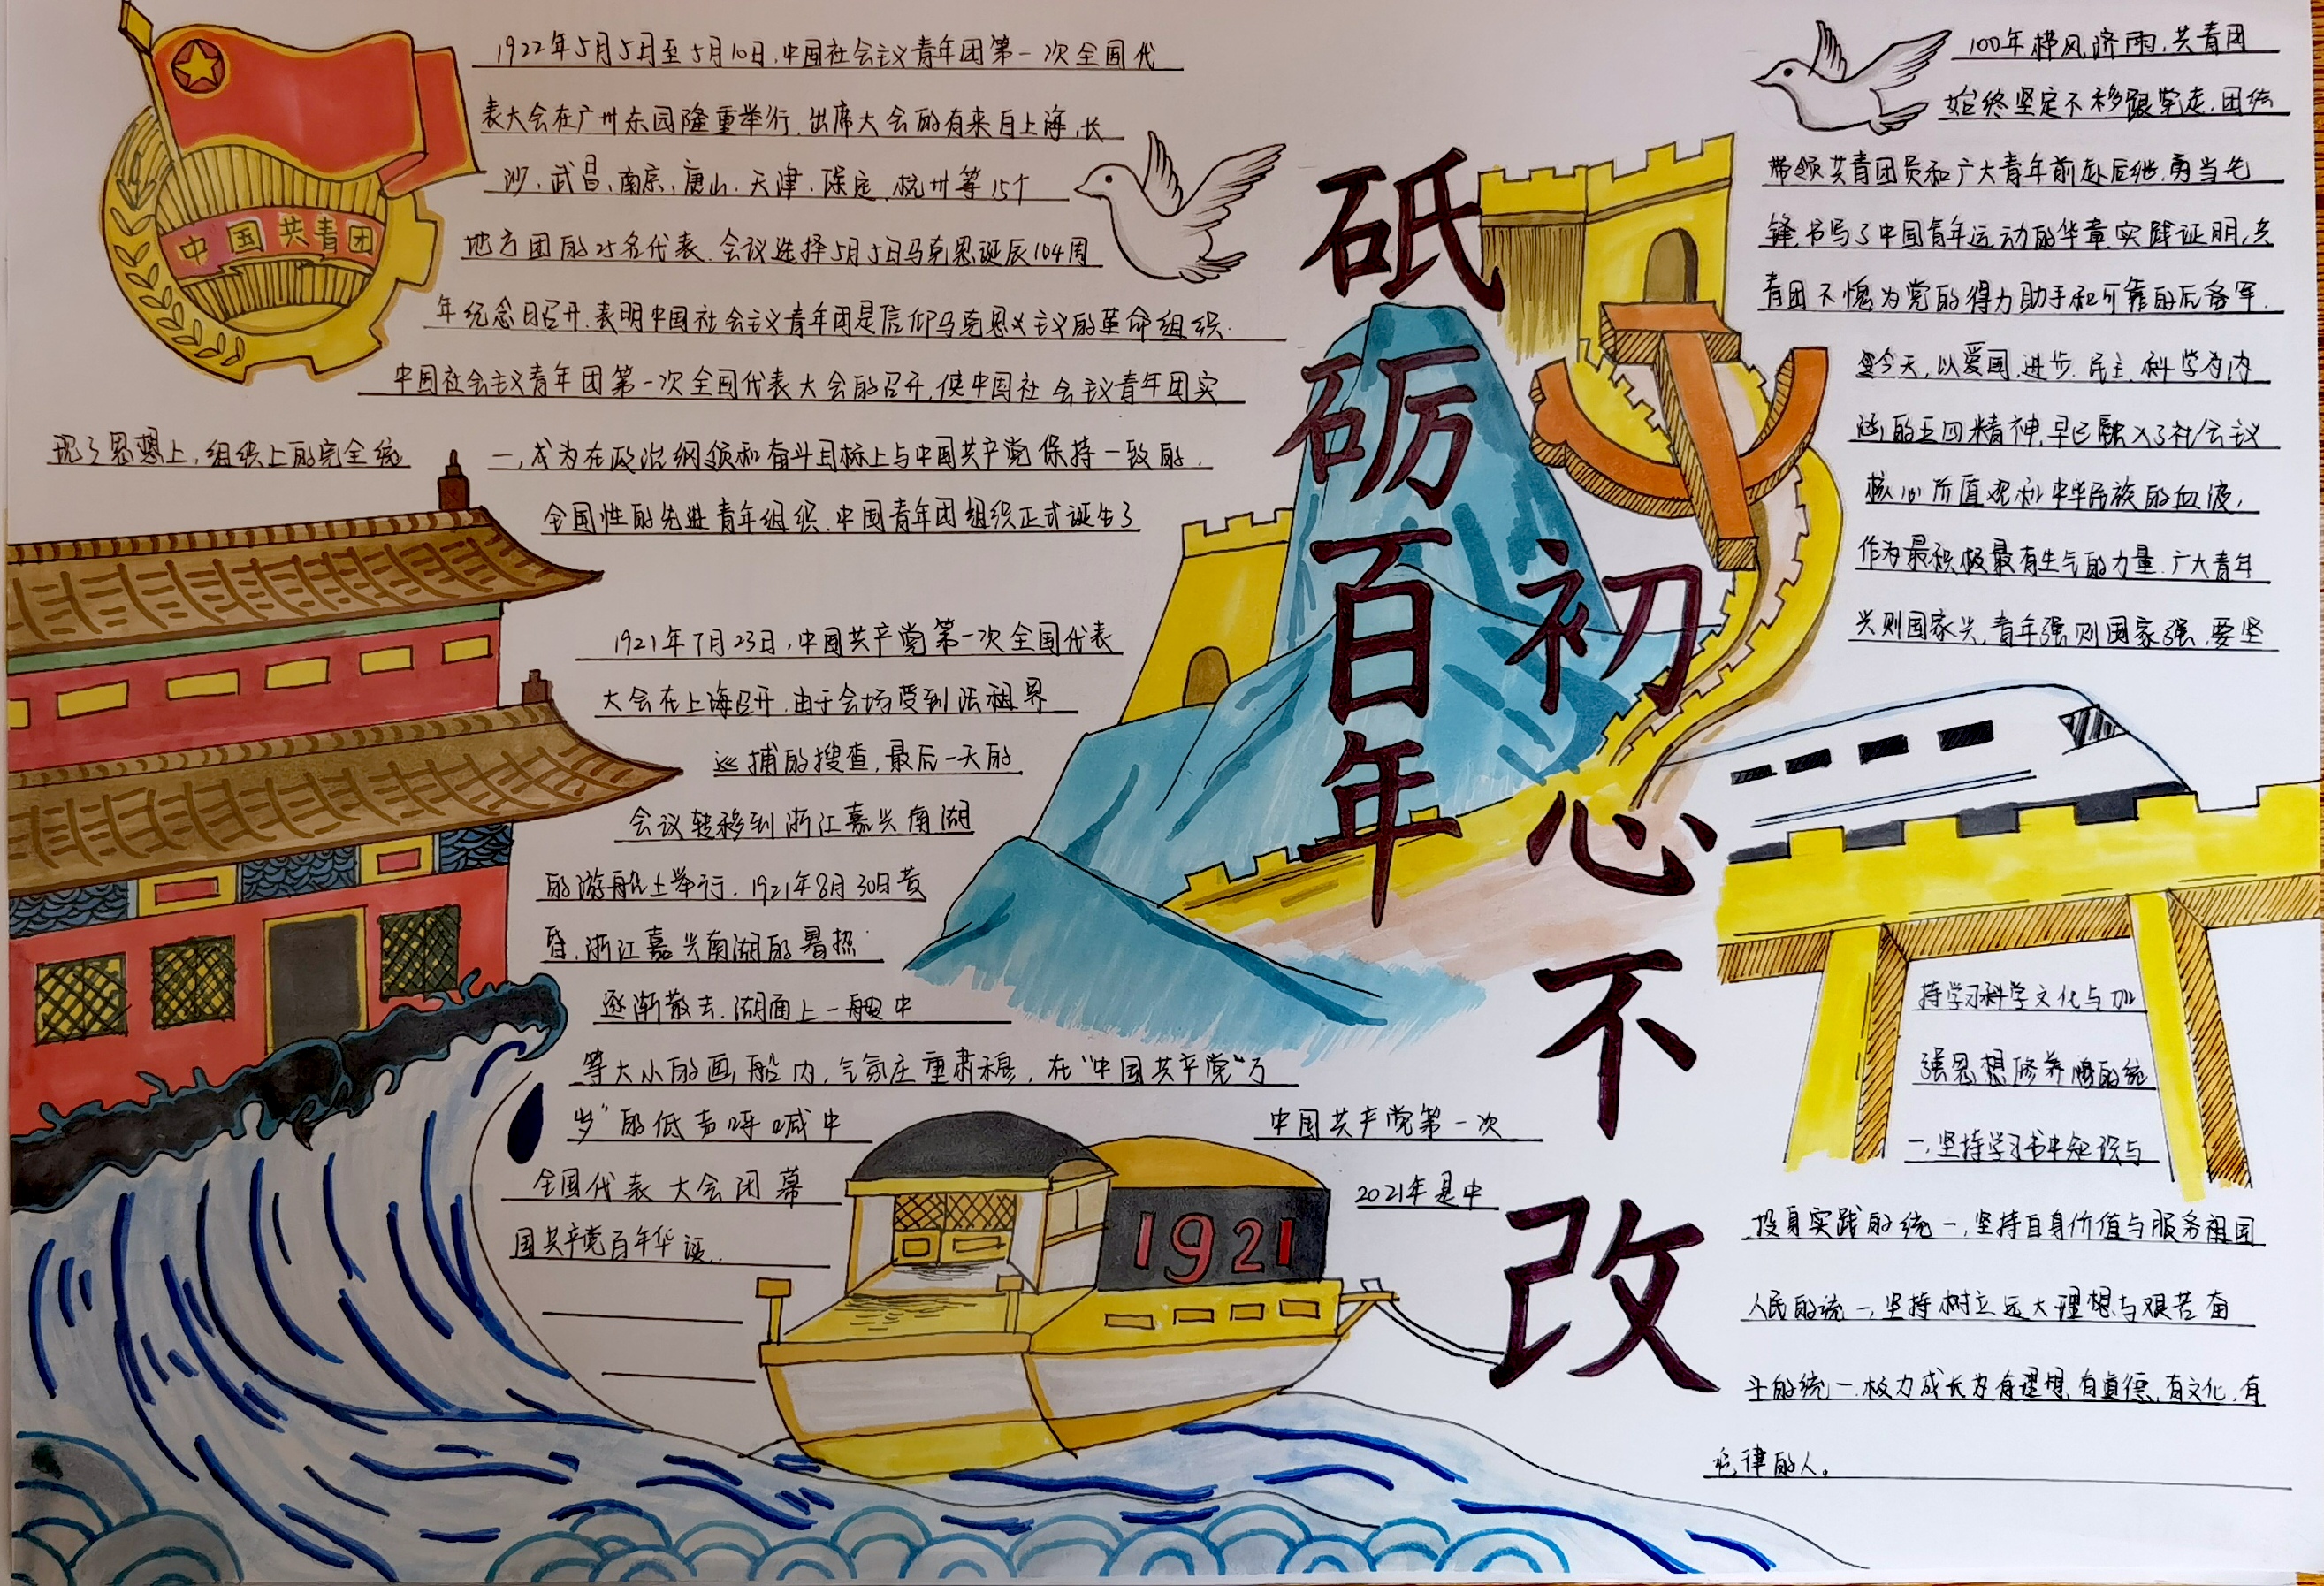 中国共青团
1922年5月5日至5月10日,中国社会主义青年团第一次全国代
表大会在广州东园隆重举行.出席大会的有来自上海,长
沙、武昌、南京、唐山、天津、保定、杭州等15个
地方团的25名代表.会议选择5月5日马克思诞辰104周
年纪念日召开.表明中国社会主义青年团是信仰马克思主义的革命组织.
中国社会主义青年团第一次全国代表大会的召开,使中国社会主义青年团实
现了思想上,组织上的完全统
一,成为在政治纲领和奋斗目标上与中国共产党保持一致的.
全国性的先进青年组织.中国青年团组织正式诞生了
1921年7月23日,中国共产党第一次全国代表
大会在上海召开.由于会场受到法租界
巡捕的搜查,最后一天的
会议转移到浙江嘉兴南湖
的游船上举行.1921年8月30日黄
昏,浙江嘉兴南湖的暑热
逐渐散去.湖面上一艘中
等大小的画船内,气氛庄重肃穆,在“中国共产党”万
岁”的低声呼喊中
中国共产党第一次
全国代表大会闭幕
2021年是中
国共产党百年华诞.
1921
砥砺百年
初心不改
100年栉风沐雨,共青团
始终坚定不移跟党走.团结
带领共青团员和广大青年前赴后继.勇当先
锋.书写了中国青年运动的华章.实践证明,共
青团不愧为党的得力助手和可靠的后备军.
今天,以爱国.进步.民主.科学为内
涵的五四精神,早已融入了社会主义
核心价值观和中华民族的血液,
作为最积极最有生气的力量.广大青年
兴则国家兴,青年强则国家强.要坚
持学习科学文化与加
强思想修养的统
一,坚持学习书中知识与
投身实践的统一,坚持自身价值与服务祖国
人民的统一,坚持树立远大理想与艰苦奋
斗的统一.极力成长为有理想,有道德,有文化,有
纪律的人。